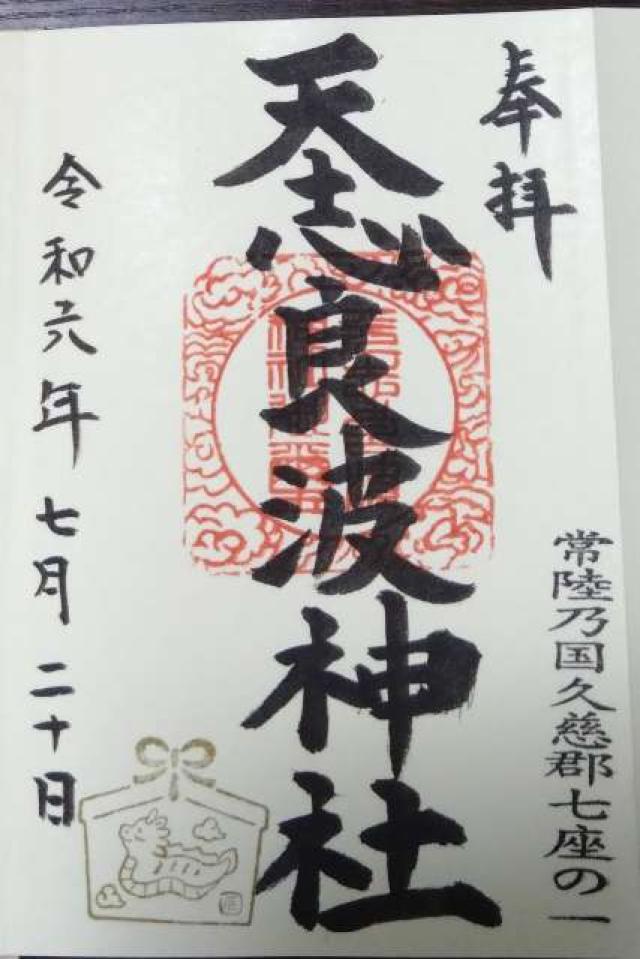 奉拝
常陸乃国久慈郡七座の一
天志良波神社
令和六年七月二十日